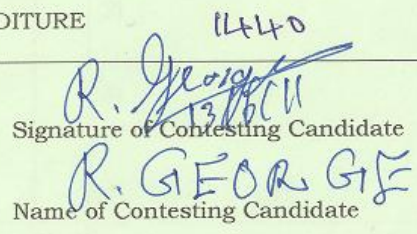 DITURE 1440
R. George
13/6/11
Signature of Contesting Candidate
R. GEORGE
Name of Contesting Candidate